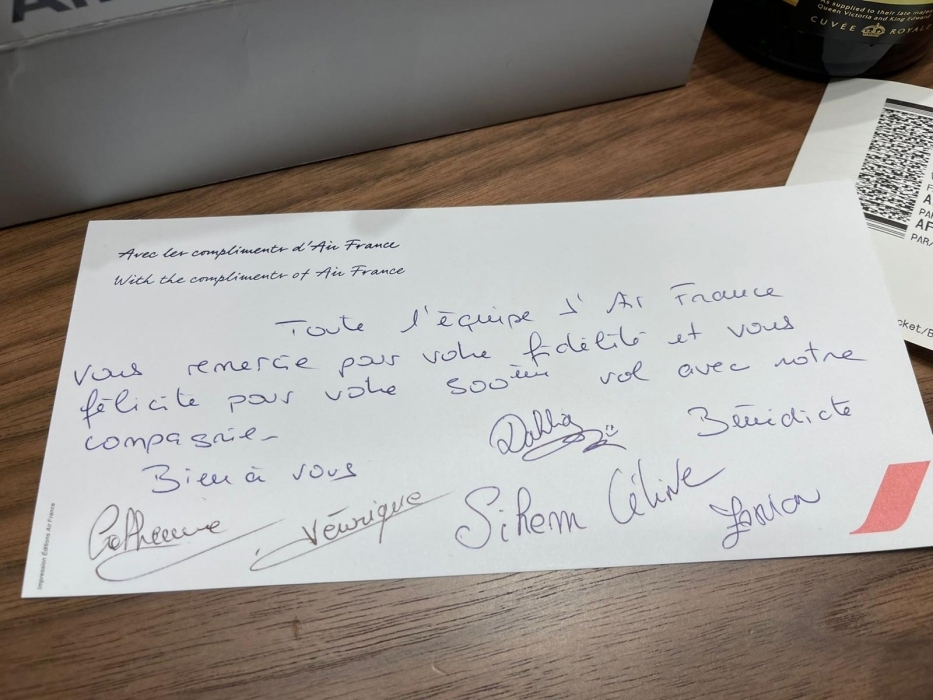 As supplied to their late Majes
Queen Victoria and King Edward
CUVÉE ROYALE
AF
PAR
cket/B
Avec les compliments d'Air France
With the compliments of Air France
Toute l'équipe d'Air France
vous remercie pour votre fidélité et vous
félicite pour votre 500ème vol avec notre
compagnie-
Bien à vous
Dahlia Bénédicte
Catherine Véronique Sihem Céline
Impression Editions Air France